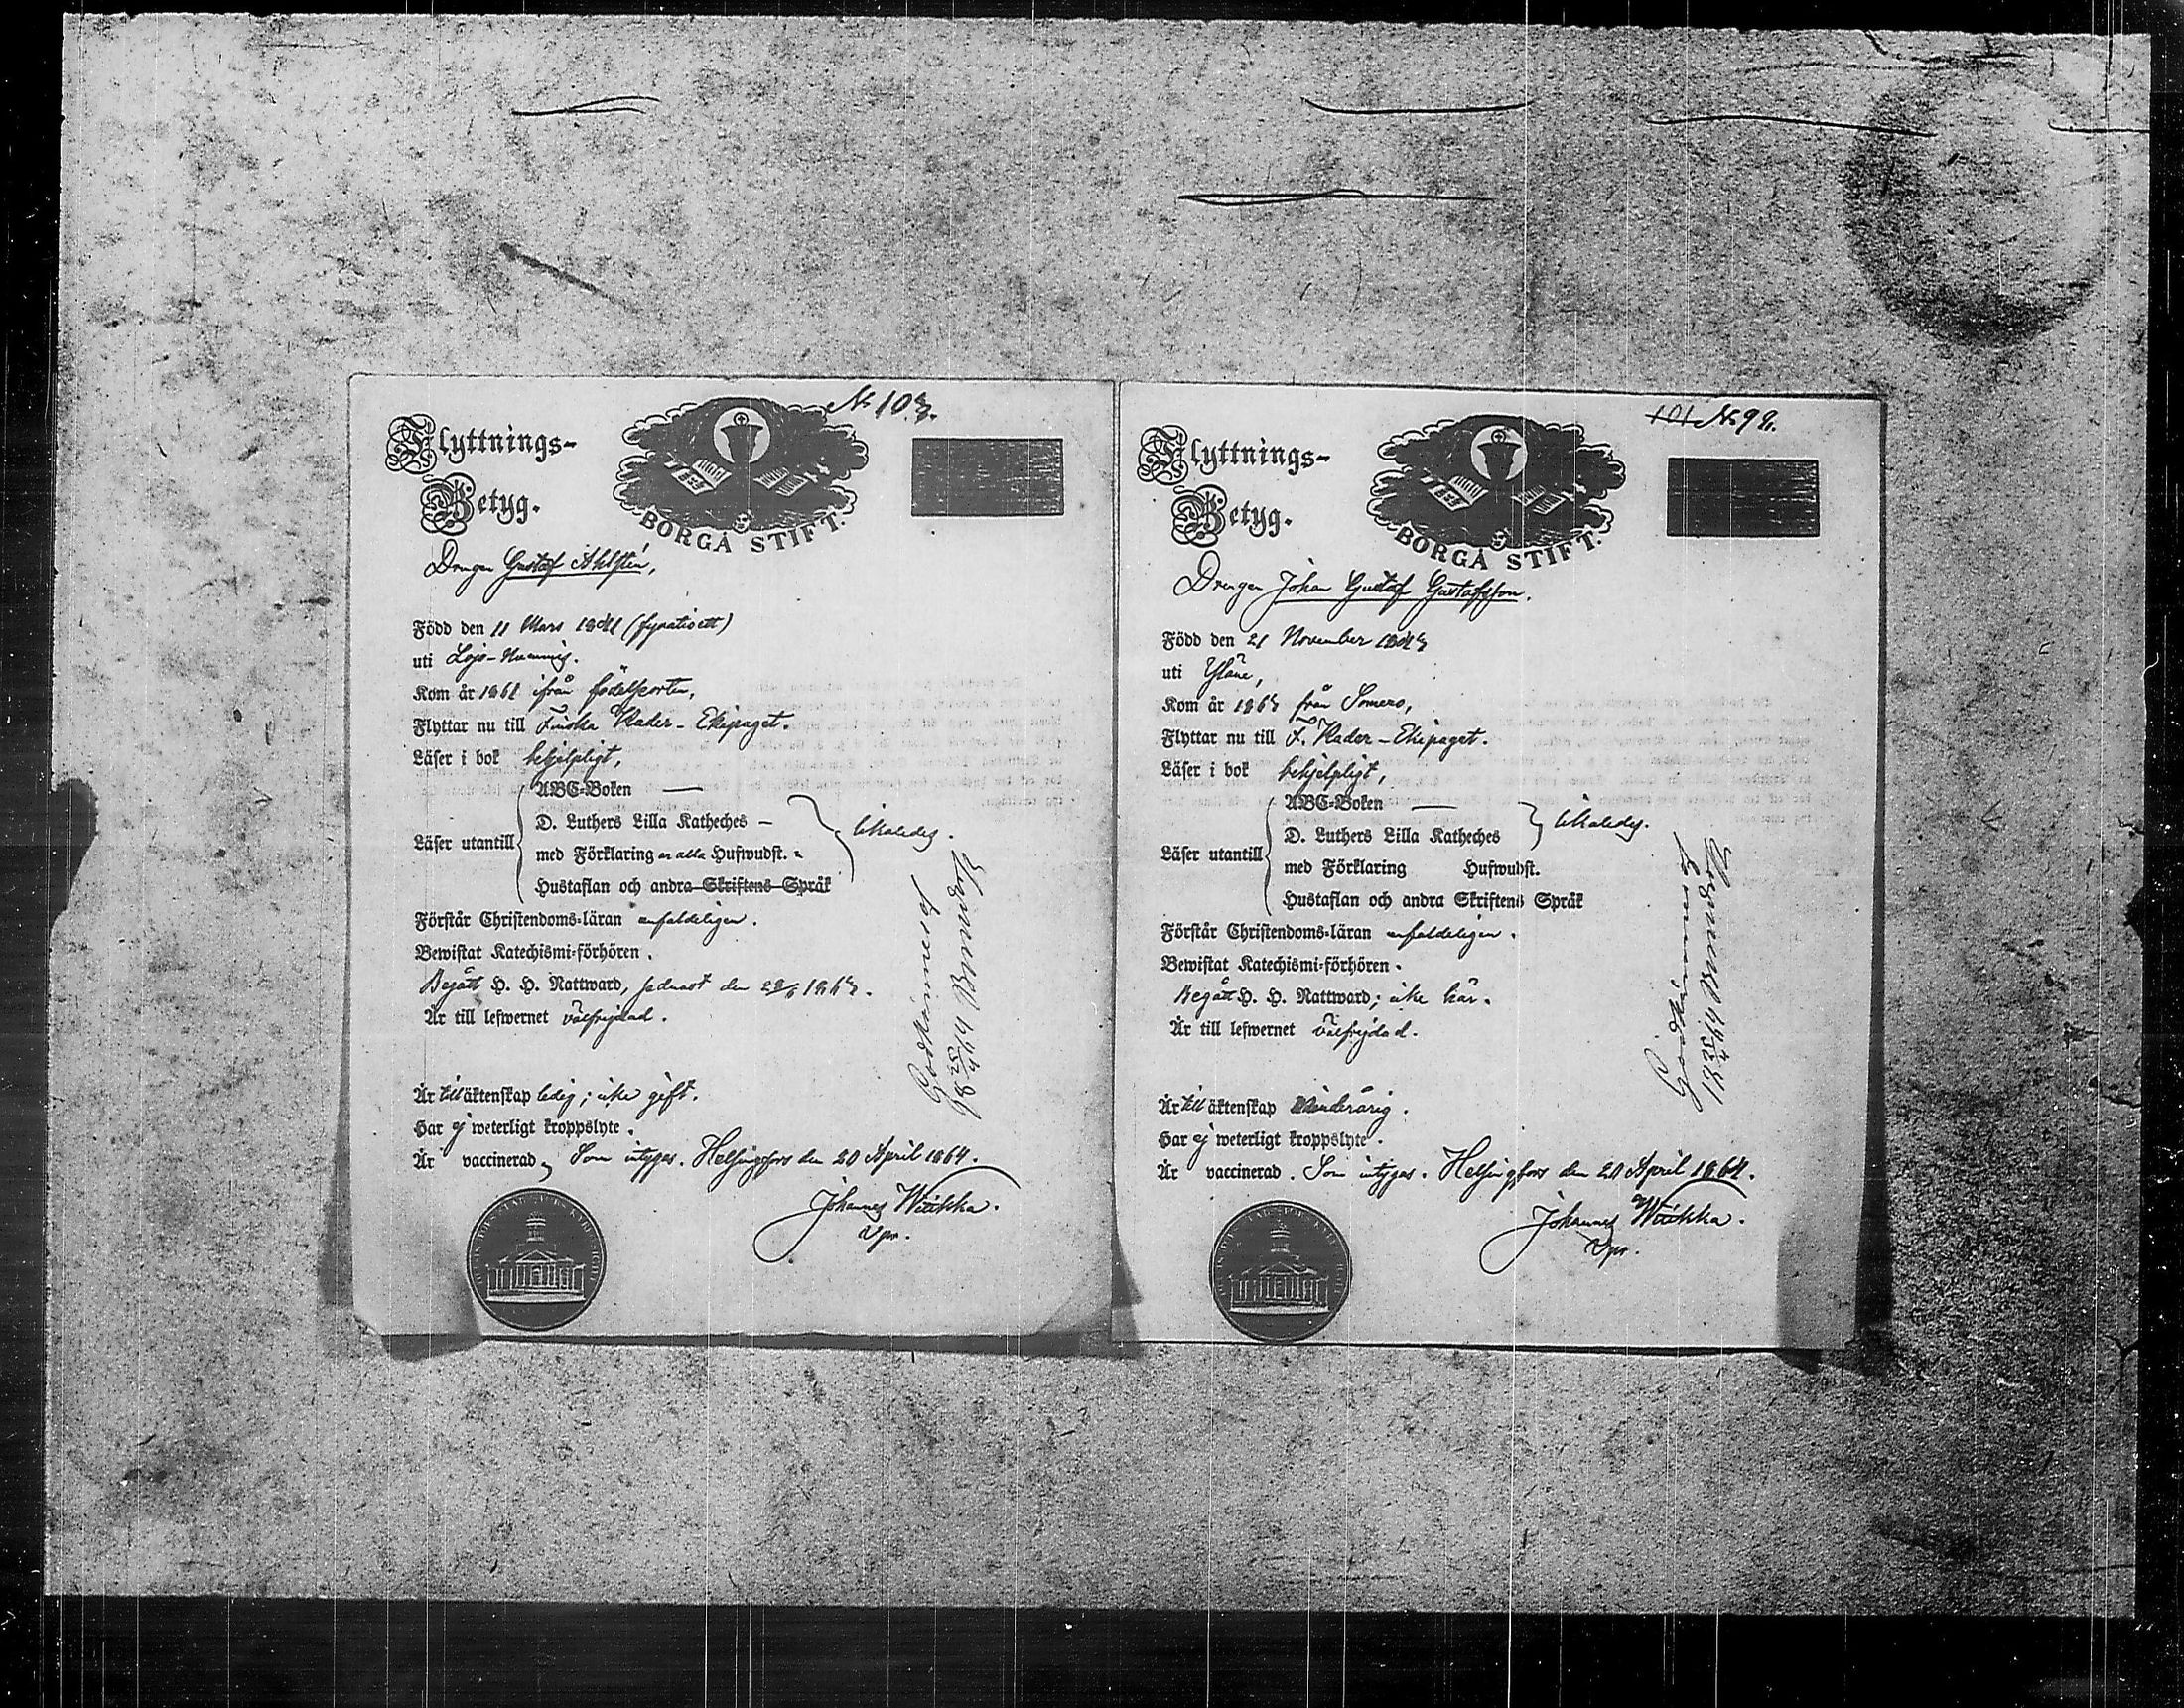 Flyttnings-
Betyg.
BORGÅ STIFT.
Drengen Gustaf Ahlstén,
Född den 11 Mars 1841 (fyratioett)
uti Lojo-Nummis.
Kom år 1861 ifrån födelseorten,
Flyttar nu till Finska Kader-Ekipaget.
Läser i bok behjelpligt,
ABC-Boken —
D. Luthers Lilla Katheches —
Läser utantill
med Förklaring Hufwudst.
likaledes.
Hustaflan och andra Skriftens Språk
Förstår Christendoms-läran enfaldeligen.
Bewistat Katechismi-förhören.
Begått H. H. Nattward, sednast den
Är till lefwernet välfrejdad.
Är till äktenskap ledig; icke gift.
Har ej weterligt kroppslyte.
Är vaccinerad, Som intygas. Helsingfors den 20 April 1864.
Johannes
Vpr.
Godkännes
Flyttnings-
Betyg.
BORGÅ STIFT.
Drengen Johan Gustaf Gustafsson.
Född den 21 November
uti Yläne,
Kom år från Somero,
Flyttar nu till F. Kader-Ekipaget.
Läser i bok behjelpligt,
ABC-Boken —
D. Luthers Lilla Katheches
likaledes.
Läser utantill
med Förklaring Hufwudst.
Hustaflan och andra Skriftens Språk
Förstår Christendoms-läran enfaldeligen.
Bewistat Katechismi-förhören.
Begått H. H. Nattward; icke här.
Är till lefwernet välfrejdad.
Är till äktenskap Minderårig.
Har ej weterligt kroppslyte.
Är vaccinerad. Som intygas. Helsingfors den 20 April 1864.
Johannes
Vpr.
Godkännes